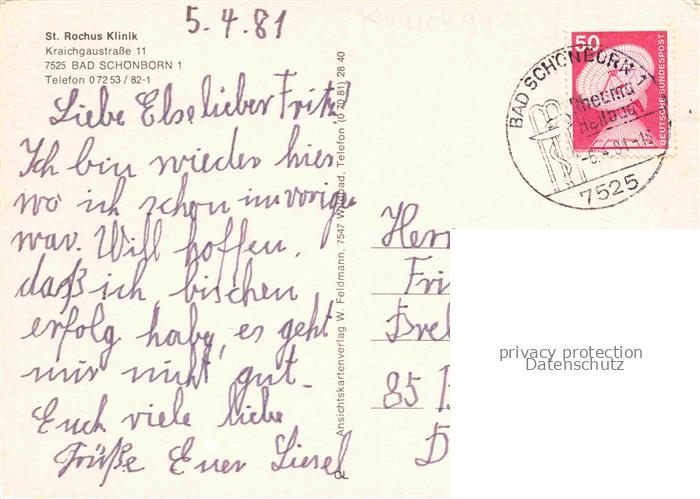 5.4.81
St. Rochus Klinik
Kraichgaustraße 11
7525 BAD SCHÖNBORN 1
Telefon 0 72 53 / 82-1
Liebe Else lieber Fritz!
Ich bin wieder hier
wo ich schon im vorige
war. Will hoffen,
daß ich bischen
erfolg habe, es geht
mir nicht gut.
Euch viele liebe
Grüße Euer Liesel
Ansichtskartenverlag W. Feldmann, 7547 Wildbad, Telefon (0 70 81) 28 40
50
DEUTSCHE BUNDESPOST
BAD SCHÖNBORN 1
Rheuma
Heilbad
7525
Herr
Fri
Brel
85
privacy protection
Datenschutz